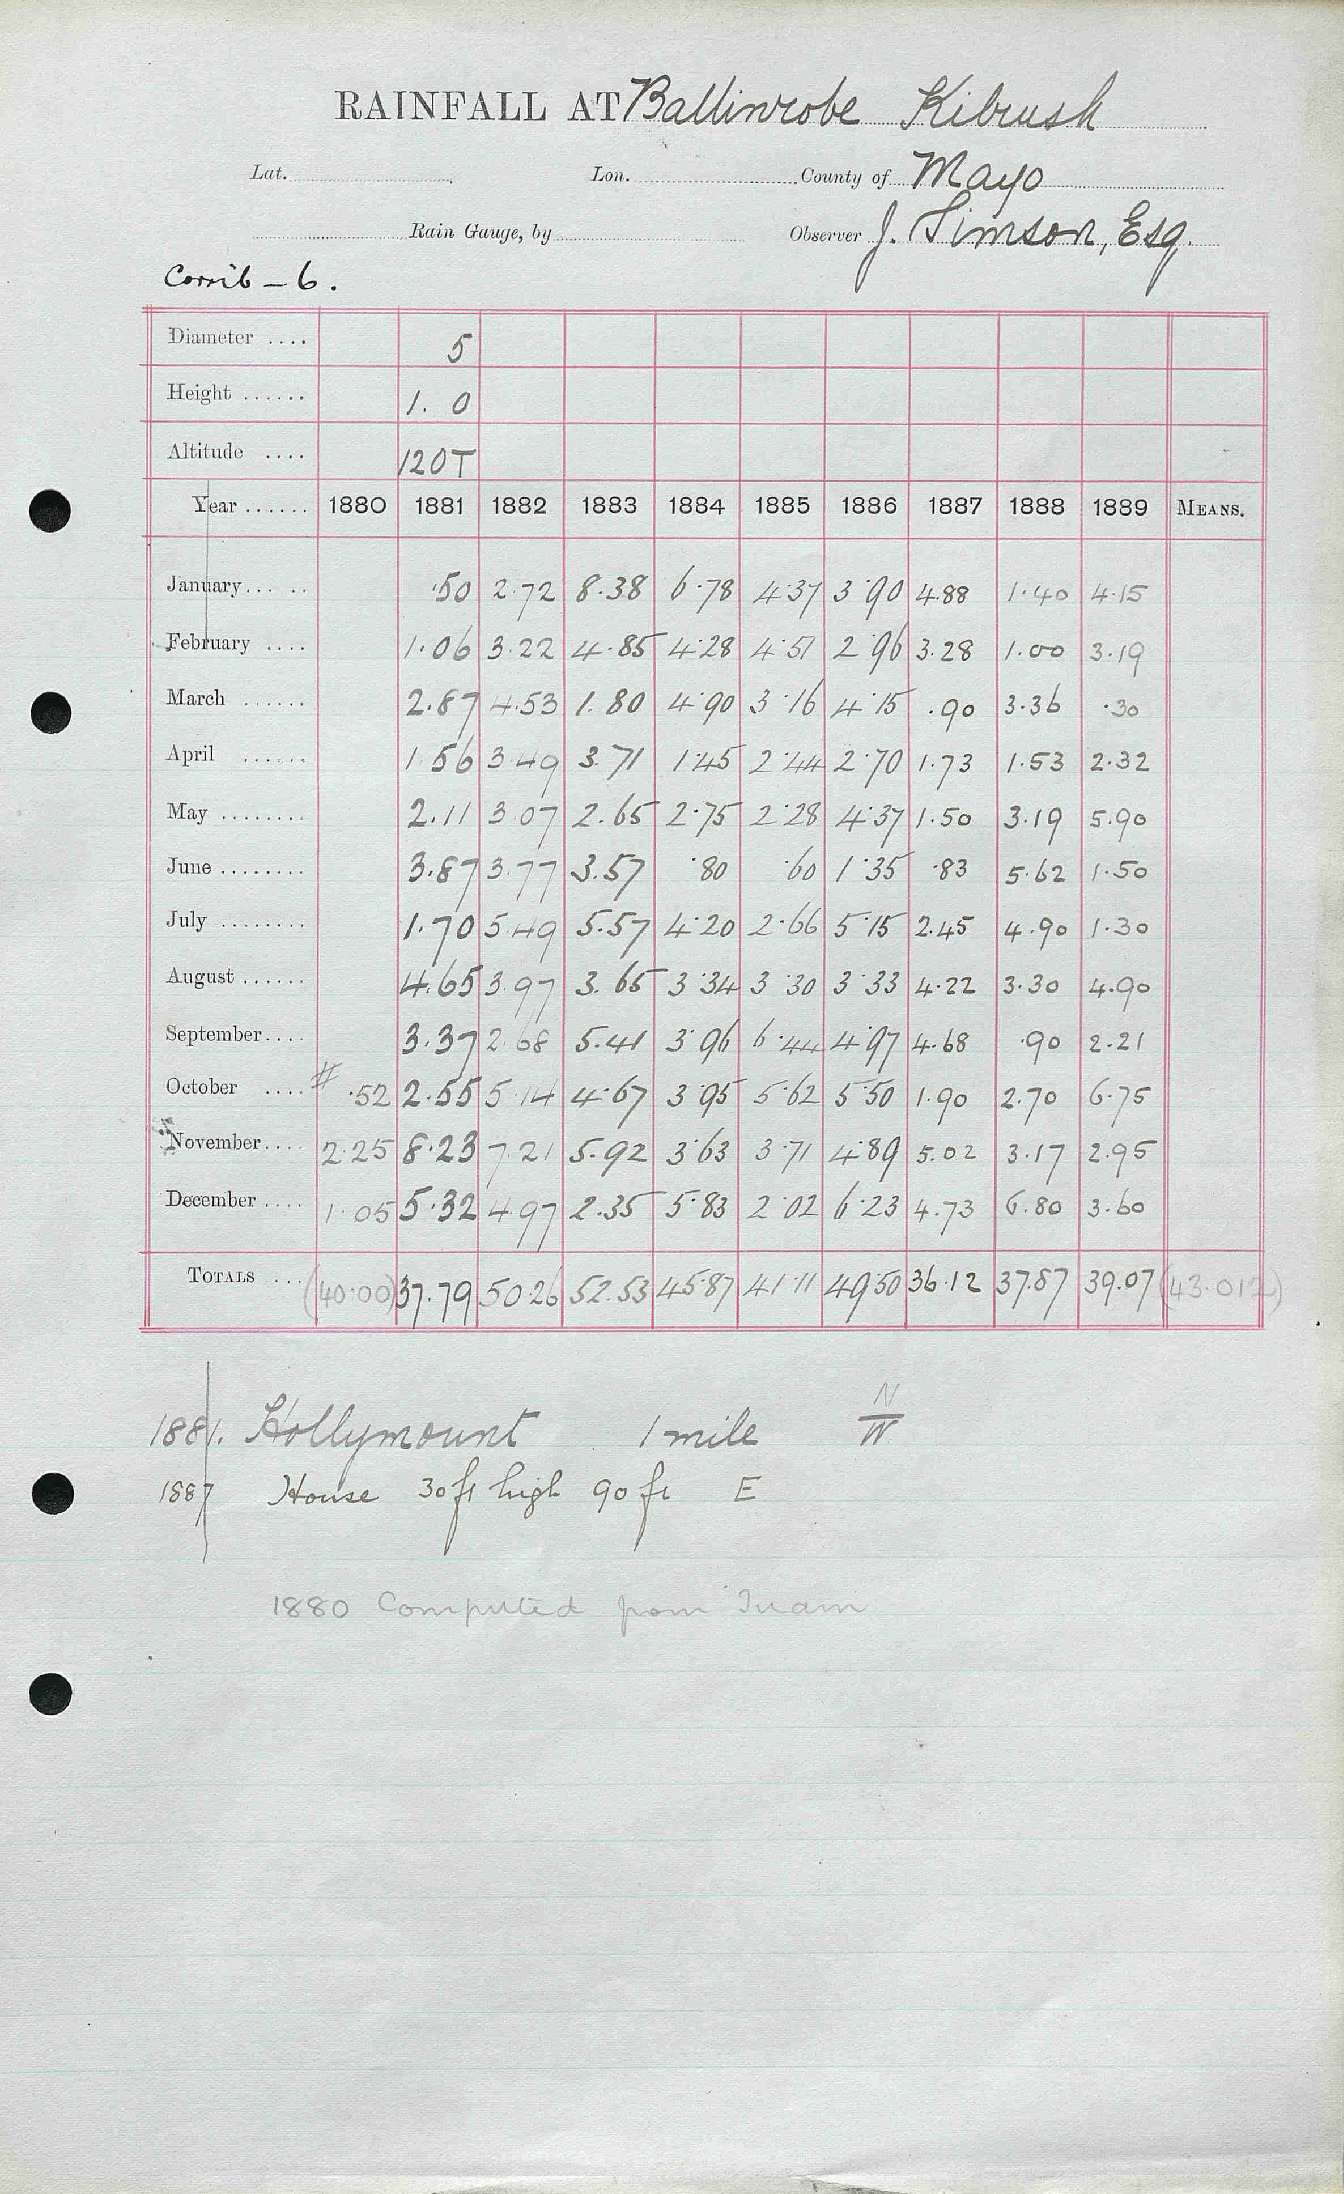 RAINFALL AT Ballinrobe Kibrush
Lat. Lon. County of Mayo
Rain Gauge, by Observer J. Simson, Esq.
Corrib - 6.
Diameter .... 5
Height ...... 1. 0
Altitude .... 120T
Year ...... 1880 1881 1882 1883 1884 1885 1886 1887 1888 1889 MEANS.
January... .. .50 2.72 8.38 6.78 4.37 3.90 4.88 1.40 4.15
February .... 1.06 3.22 4.85 4.28 4.51 2.96 3.28 1.00 3.19
March ...... 2.87 4.53 1.80 4.90 3.16 4.15 .90 3.36 .30
April ...... 1.56 3.49 3.71 1.45 2.44 2.70 1.73 1.53 2.32
May ........ 2.11 3.07 2.65 2.75 2.28 4.37 1.50 3.19 5.90
June ........ 3.87 3.77 3.57 .80 .60 1.35 .83 5.62 1.50
July ........ 1.70 5.49 5.57 4.20 2.66 5.15 2.45 4.90 1.30
August ...... 4.65 3.97 3.65 3.34 3.30 3.33 4.22 3.30 4.90
September.... 3.37 2.68 5.41 3.96 6.44 4.97 4.68 .90 2.21
October .... # .52 2.55 5.14 4.67 3.95 5.62 5.50 1.90 2.70 6.75
November.... 2.25 8.23 7.21 5.92 3.63 3.71 4.89 5.02 3.17 2.95
December .... 1.05 5.32 4.97 2.35 5.83 2.02 6.23 4.73 6.80 3.60
TOTALS ... (40.00) 37.79 50.26 52.53 45.87 41.11 49.50 36.12 37.87 39.07 (43.012)
1881. Hollymount 1 mile N/W
1887 House 30 ft high 90 ft E
1880 Computed from Tuam